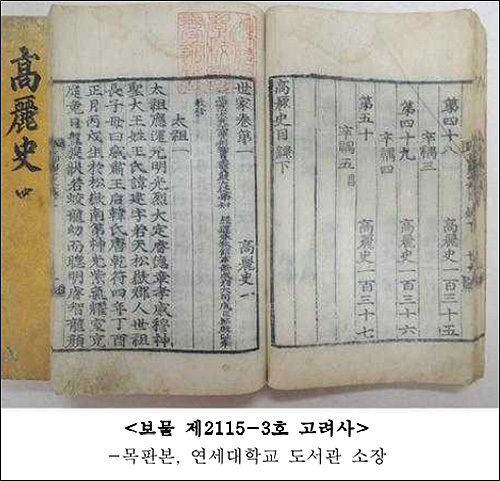 高麗史
第四十八 高麗史一百三十五
辛禑三
第四十九 高麗史一百三十六
辛禑四
第五十 高麗史一百三十七
辛禑五
高麗史目錄下
世家卷第一 高麗史一
教修
太祖一
太祖應運元明光烈大定睿德章孝威穆神
聖大王姓王氏諱建字若天松嶽郡人世祖
長子母曰威肅王后韓氏唐乾符四年丁酉
正月丙戌生於松嶽南第神光紫氣耀室充
庭竟日盤旋狀若蛟龍幼而聰明睿智龍顔
<보물 제2115-3호 고려사>
-목판본, 연세대학교 도서관 소장